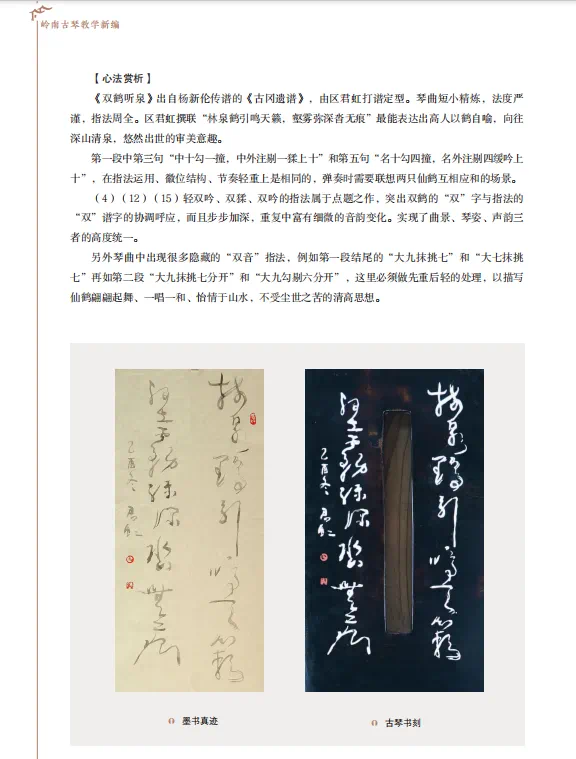 岭南古琴教学新编
【心法赏析】
《双鹤听泉》出自杨新伦传谱的《古冈遗谱》，由区君虹打谱定型。琴曲短小精炼，法度严
谨，指法周全。区君虹撰联“林泉鹤引鸣天籁，壑雾弥深杳无痕”最能表达出高人以鹤自喻，向往
深山清泉，悠然出世的审美意趣。
第一段中第三句“中十勾一撞，中外注剔一猱上十”和第五句“名十勾四撞，名外注剔四缓吟上
十”，在指法运用、徽位结构、节奏轻重上是相同的，弹奏时需要联想两只仙鹤互相应和的场景。
（4）（12）（15）轻双吟、双猱、双吟的指法属于点题之作，突出双鹤的“双”字与指法的
“双”谱字的协调呼应，而且步步加深，重复中富有细微的音韵变化。实现了曲景、琴姿、声韵三
者的高度统一。
另外琴曲中出现很多隐藏的“双音”指法，例如第一段结尾的“大九抹挑七”和“大七抹挑
七”再如第二段“大九抹挑七分开”和“大九勾剔六分开”，这里必须做先重后轻的处理，以描写
仙鹤翩翩起舞、一唱一和、怡情于山水，不受尘世之苦的清高思想。
乙酉冬
乙酉冬
墨书真迹
古琴书刻